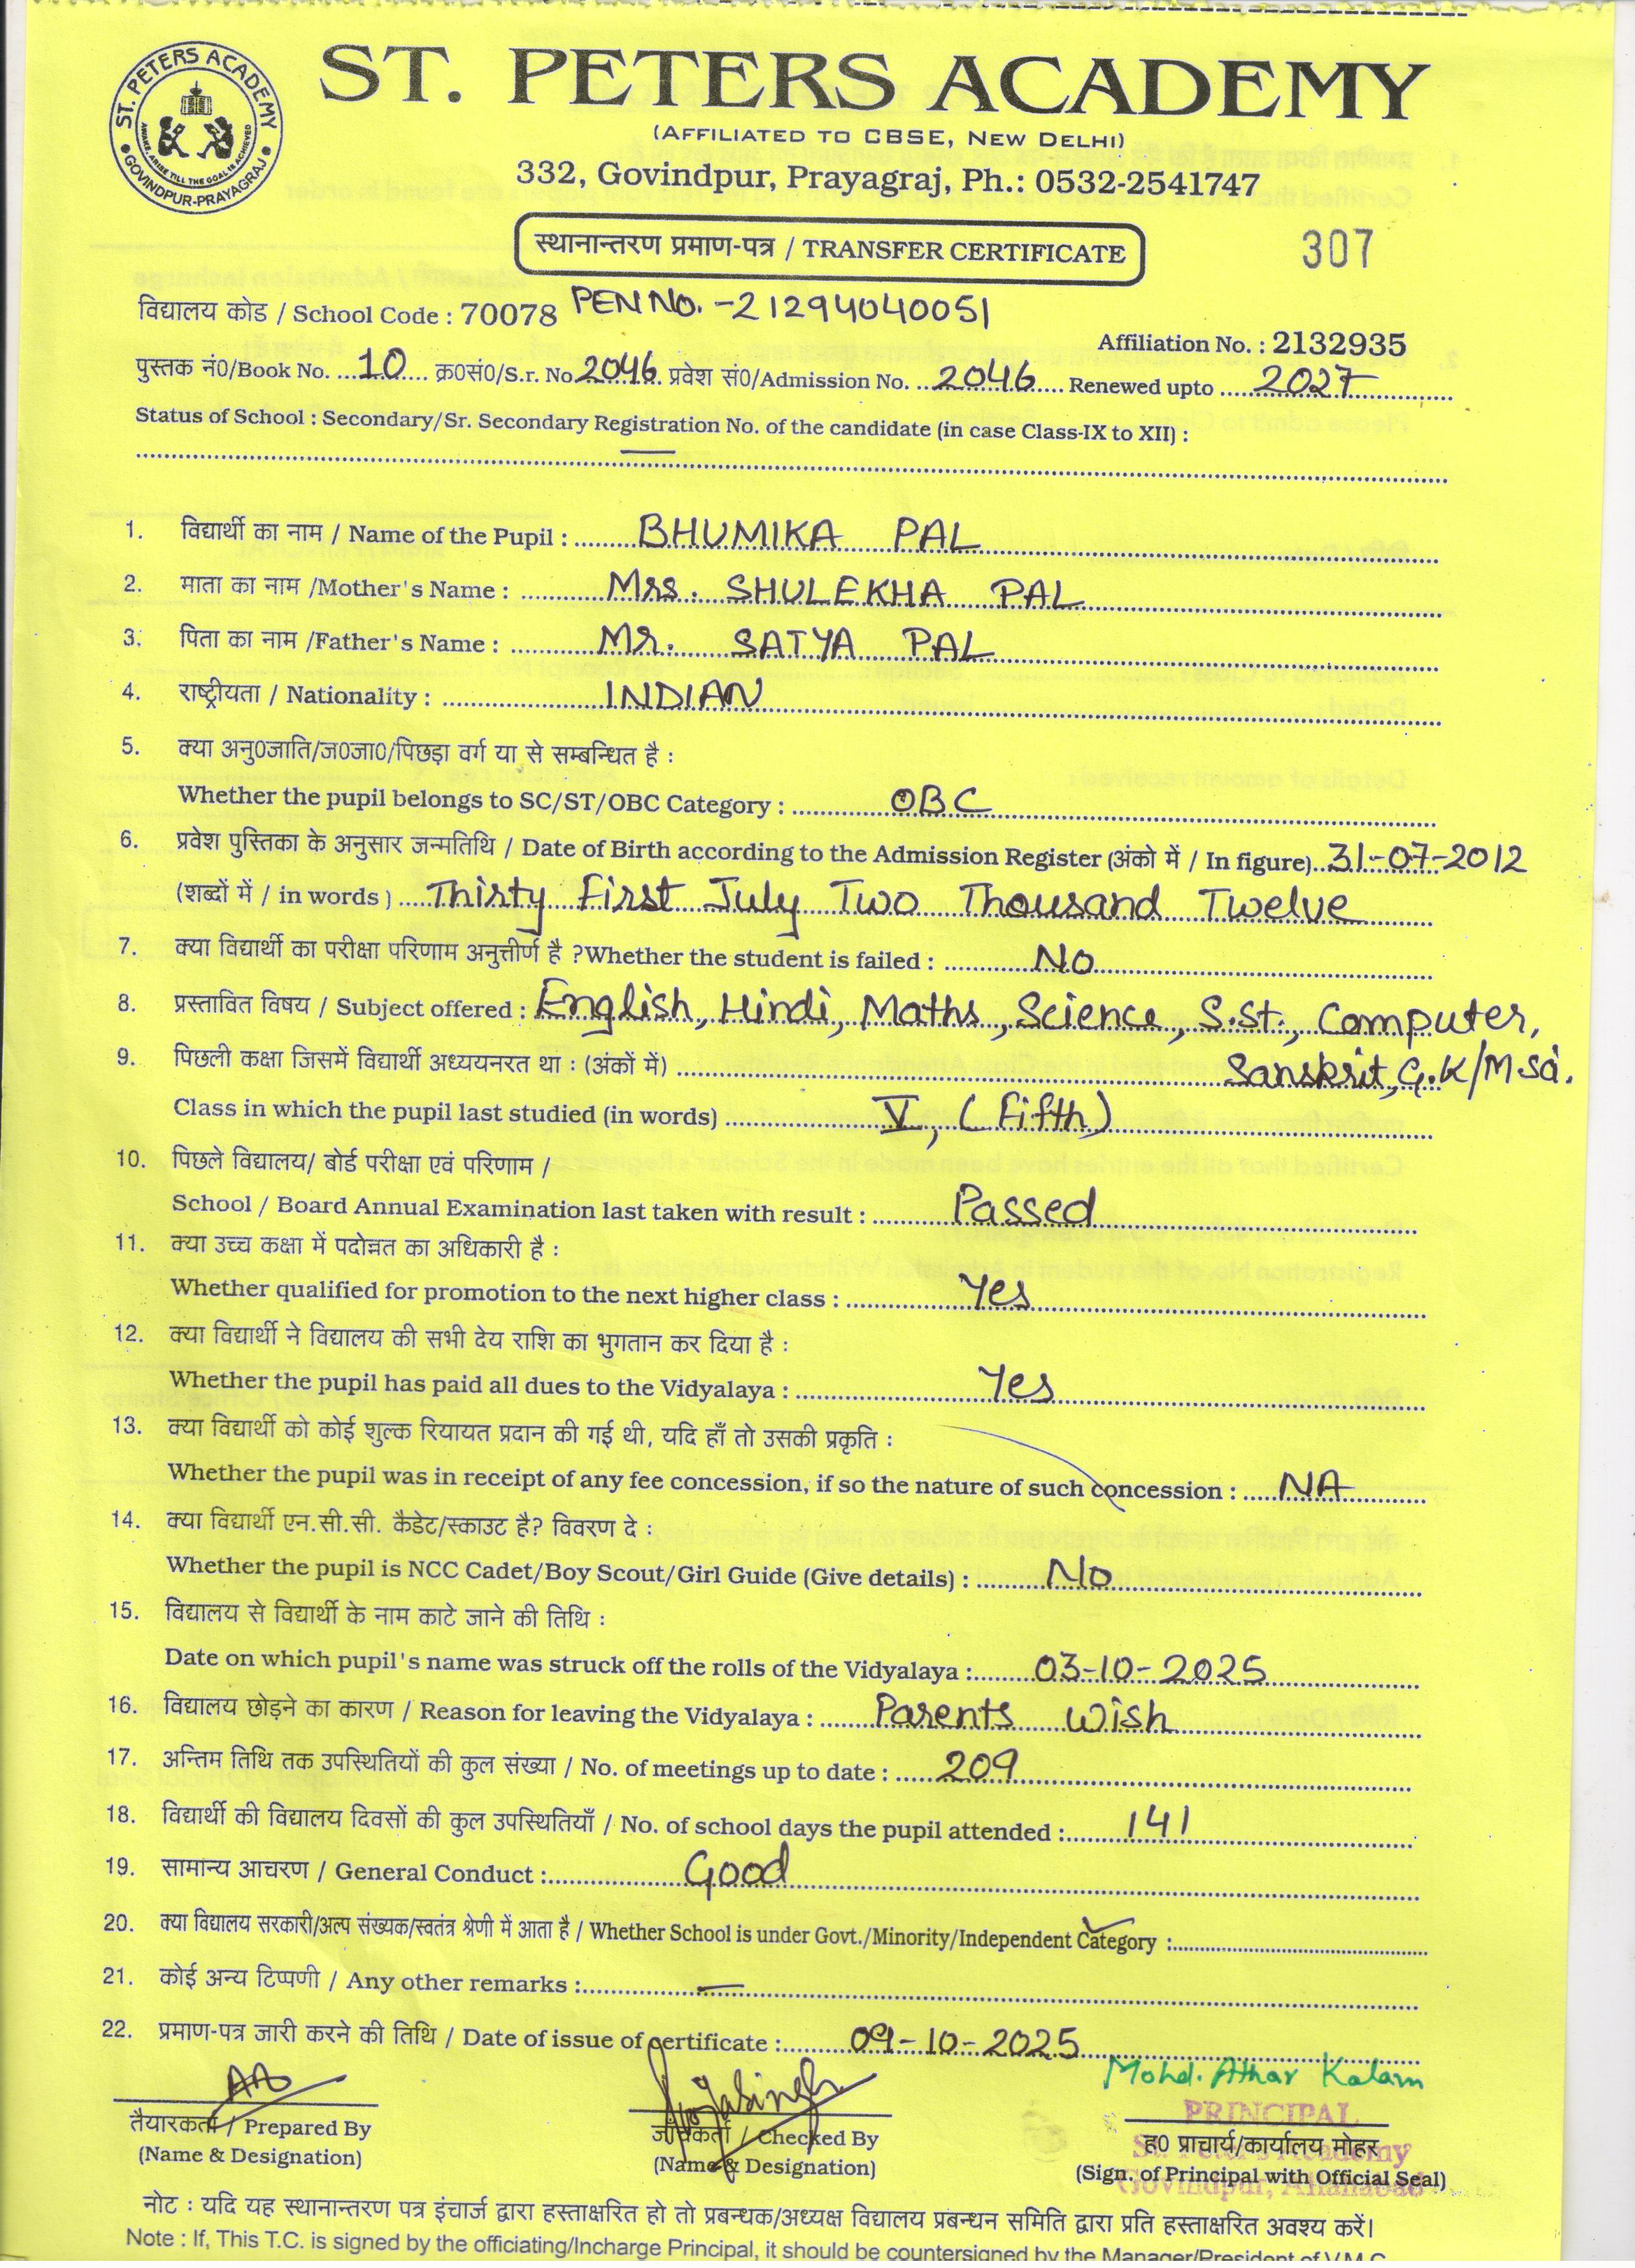 ST. PETERS ACADEMY
AWAKE, ARISE TILL THE GOAL IS ACHIEVED
GOVINDPUR-PRAYAGRAJ
ST. PETERS ACADEMY
(AFFILIATED TO CBSE, NEW DELHI)
332, Govindpur, Prayagraj, Ph.: 0532-2541747
स्थानान्तरण प्रमाण-पत्र / TRANSFER CERTIFICATE
307
विद्यालय कोड / School Code : 70078 PEN NO. -21294040051
Affiliation No. : 2132935
पुस्तक नं0/Book No. ...10.... क्र0सं0/S.r. No 2046. प्रवेश सं0/Admission No. ..2046.... Renewed upto .....2027
Status of School : Secondary/Sr. Secondary Registration No. of the candidate (in case Class-IX to XII) :
—
1. विद्यार्थी का नाम / Name of the Pupil : BHUMIKA PAL
2. माता का नाम /Mother's Name : Mrs. SHULEKHA PAL
3. पिता का नाम /Father's Name : Mr. SATYA PAL
4. राष्ट्रीयता / Nationality : INDIAN
5. क्या अनु0जाति/ज0जा0/पिछड़ा वर्ग या से सम्बन्धित है :
Whether the pupil belongs to SC/ST/OBC Category : OBC
6. प्रवेश पुस्तिका के अनुसार जन्मतिथि / Date of Birth according to the Admission Register (अंको में / In figure)..31-07-2012
(शब्दों में / in words ) Thirty First July Two Thousand Twelve
7. क्या विद्यार्थी का परीक्षा परिणाम अनुत्तीर्ण है ?Whether the student is failed : No
8. प्रस्तावित विषय / Subject offered : English, Hindi, Maths, Science, S.St., Computer,
9. पिछली कक्षा जिसमें विद्यार्थी अध्ययनरत था : (अंकों में) Sanskrit, G.K/M.Sc.
Class in which the pupil last studied (in words) V, (Fifth)
10. पिछले विद्यालय/ बोर्ड परीक्षा एवं परिणाम /
School / Board Annual Examination last taken with result : Passed
11. क्या उच्च कक्षा में पदोन्नत का अधिकारी है :
Whether qualified for promotion to the next higher class : Yes
12. क्या विद्यार्थी ने विद्यालय की सभी देय राशि का भुगतान कर दिया है :
Whether the pupil has paid all dues to the Vidyalaya : Yes
13. क्या विद्यार्थी को कोई शुल्क रियायत प्रदान की गई थी, यदि हाँ तो उसकी प्रकृति :
Whether the pupil was in receipt of any fee concession, if so the nature of such concession : NA
14. क्या विद्यार्थी एन.सी.सी. कैडेट/स्काउट है? विवरण दे :
Whether the pupil is NCC Cadet/Boy Scout/Girl Guide (Give details) : No
15. विद्यालय से विद्यार्थी के नाम काटे जाने की तिथि :
Date on which pupil's name was struck off the rolls of the Vidyalaya : 03-10-2025
16. विद्यालय छोड़ने का कारण / Reason for leaving the Vidyalaya : Parents Wish
17. अन्तिम तिथि तक उपस्थितियों की कुल संख्या / No. of meetings up to date : 209
18. विद्यार्थी की विद्यालय दिवसों की कुल उपस्थितियाँ / No. of school days the pupil attended : 141
19. सामान्य आचरण / General Conduct : Good
20. क्या विद्यालय सरकारी/अल्प संख्यक/स्वतंत्र श्रेणी में आता है / Whether School is under Govt./Minority/Independent Category :
21. कोई अन्य टिप्पणी / Any other remarks : —
22. प्रमाण-पत्र जारी करने की तिथि / Date of issue of certificate : 09-10-2025
Mohd. Athar Kalam
PRINCIPAL
St. Peter's Academy
Govindpur, Allahabad
तैयारकर्ता / Prepared By
(Name & Designation)
जाँचकर्ता / Checked By
(Name & Designation)
ह0 प्राचार्य/कार्यालय मोहर
(Sign. of Principal with Official Seal)
नोट : यदि यह स्थानान्तरण पत्र इंचार्ज द्वारा हस्ताक्षरित हो तो प्रबन्धक/अध्यक्ष विद्यालय प्रबन्धन समिति द्वारा प्रति हस्ताक्षरित अवश्य करें।
Note : If, This T.C. is signed by the officiating/Incharge Principal, it should be countersigned by the Manager/President of V.M.C.